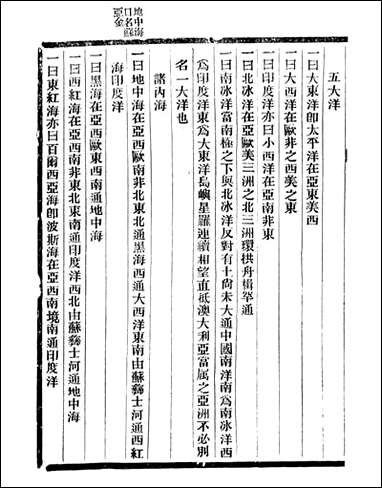 地中海
口名羅
亞金
五大洋
一曰大東洋卽太平洋在亞東美西
一曰大西洋在歐非之西美之東
一曰印度洋亦曰小西洋在亞南非東
一曰北冰洋在亞歐美三洲之北三洲環拱舟楫罕通
一曰南冰洋當南極之下與北冰洋反對有土尙未大通中國南洋南爲南冰洋西
爲印度洋東爲大東洋島嶼星羅連續相望直抵澳大利亞當属之亞洲不必別
名一大洋也
諸內海
一曰地中海在亞西歐南非北東北通黑海西通大西洋東南由蘇彝士河通西紅
海印度洋
一曰黑海在亞西歐東西南通地中海
一曰西紅海在亞西南非東北東南通印度洋西北由蘇彝士河通地中海
一曰東紅海亦曰百爾西亞海卽波斯海在亞西南境南通印度洋